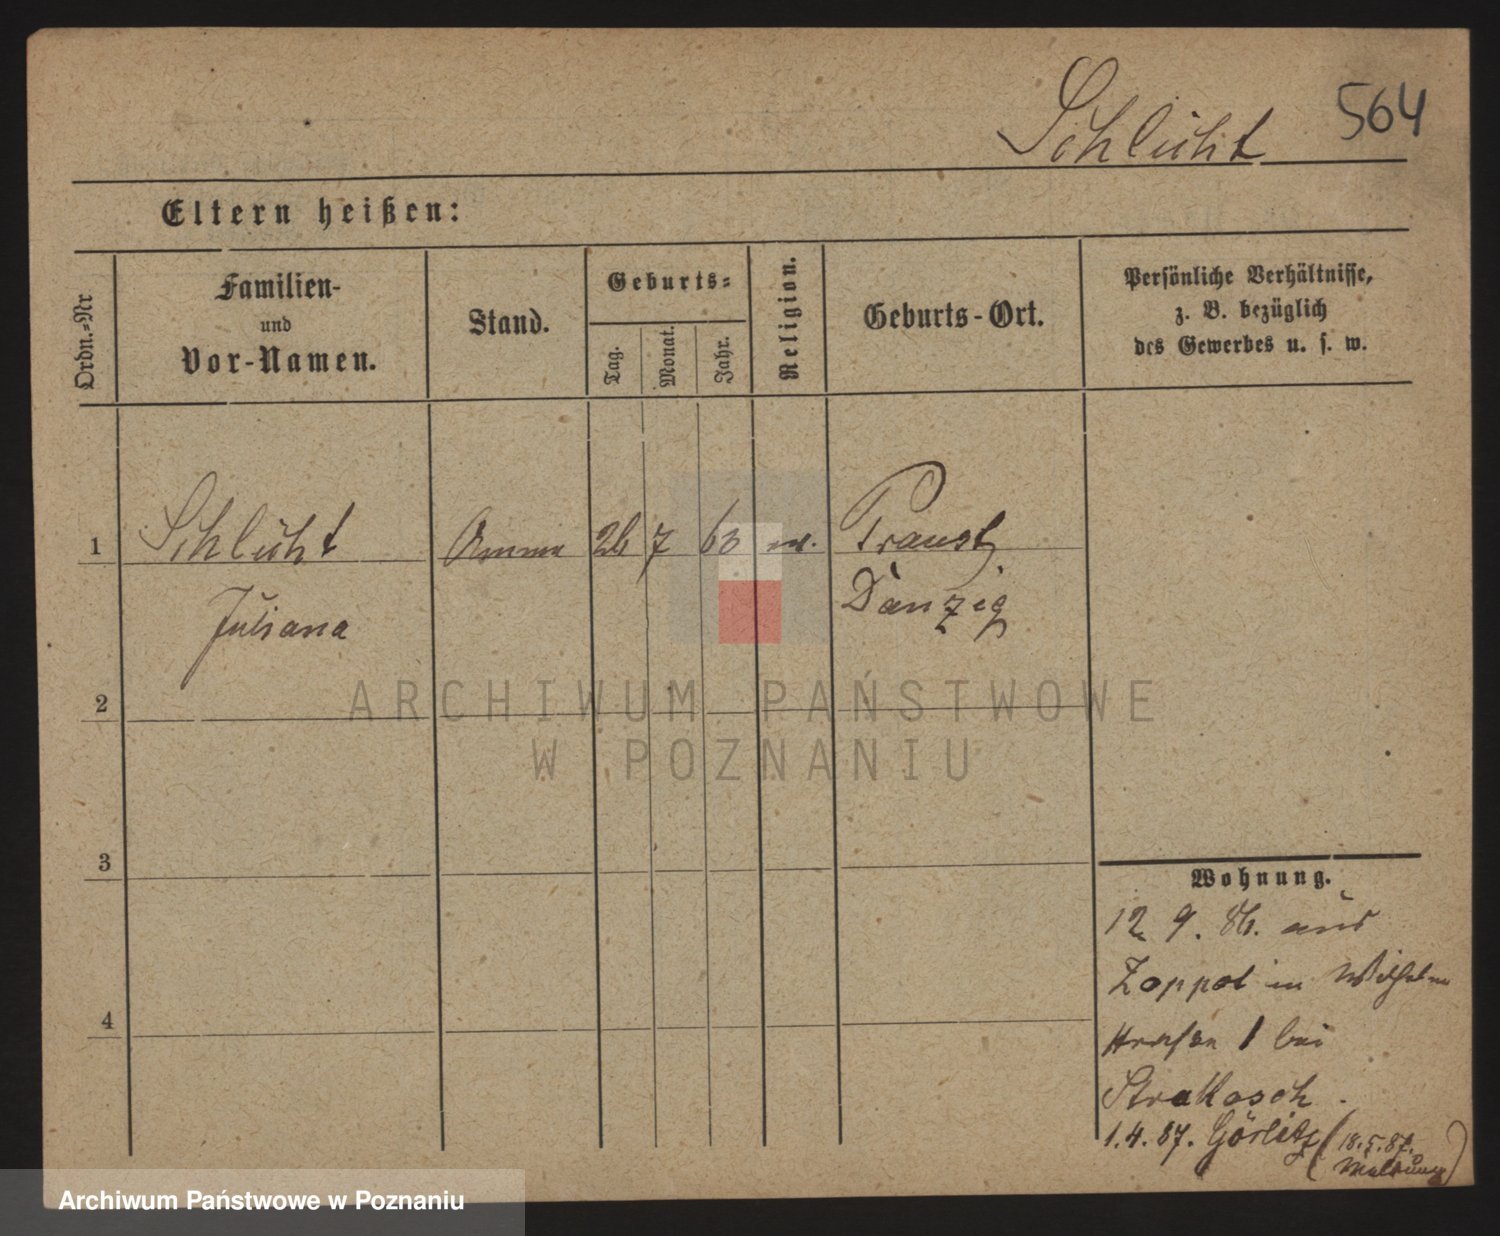 564
Schlicht
Eltern heißen:
Ordn.=Nr
Familien-
und
Vor-Namen.
Stand.
Geburts=
Tag.
Monat.
Jahr.
Religion.
Geburts-Ort.
Persönliche Verhältnisse,
z. B. bezüglich
des Gewerbes u. s. w.
1
Schlicht
Amme
26
7
63
ev.
Praust
Juliana
Danzig
2
ARCHIWUM PAŃSTWOWE
W POZNANIU
3
Wohnung.
12 9. 86. aus
Zoppot in Wilhelm
strasse 1 bei
4
Strakosch.
1.4.87. Görlitz (18.5.87.
Meldung)
Archiwum Państwowe w Poznaniu